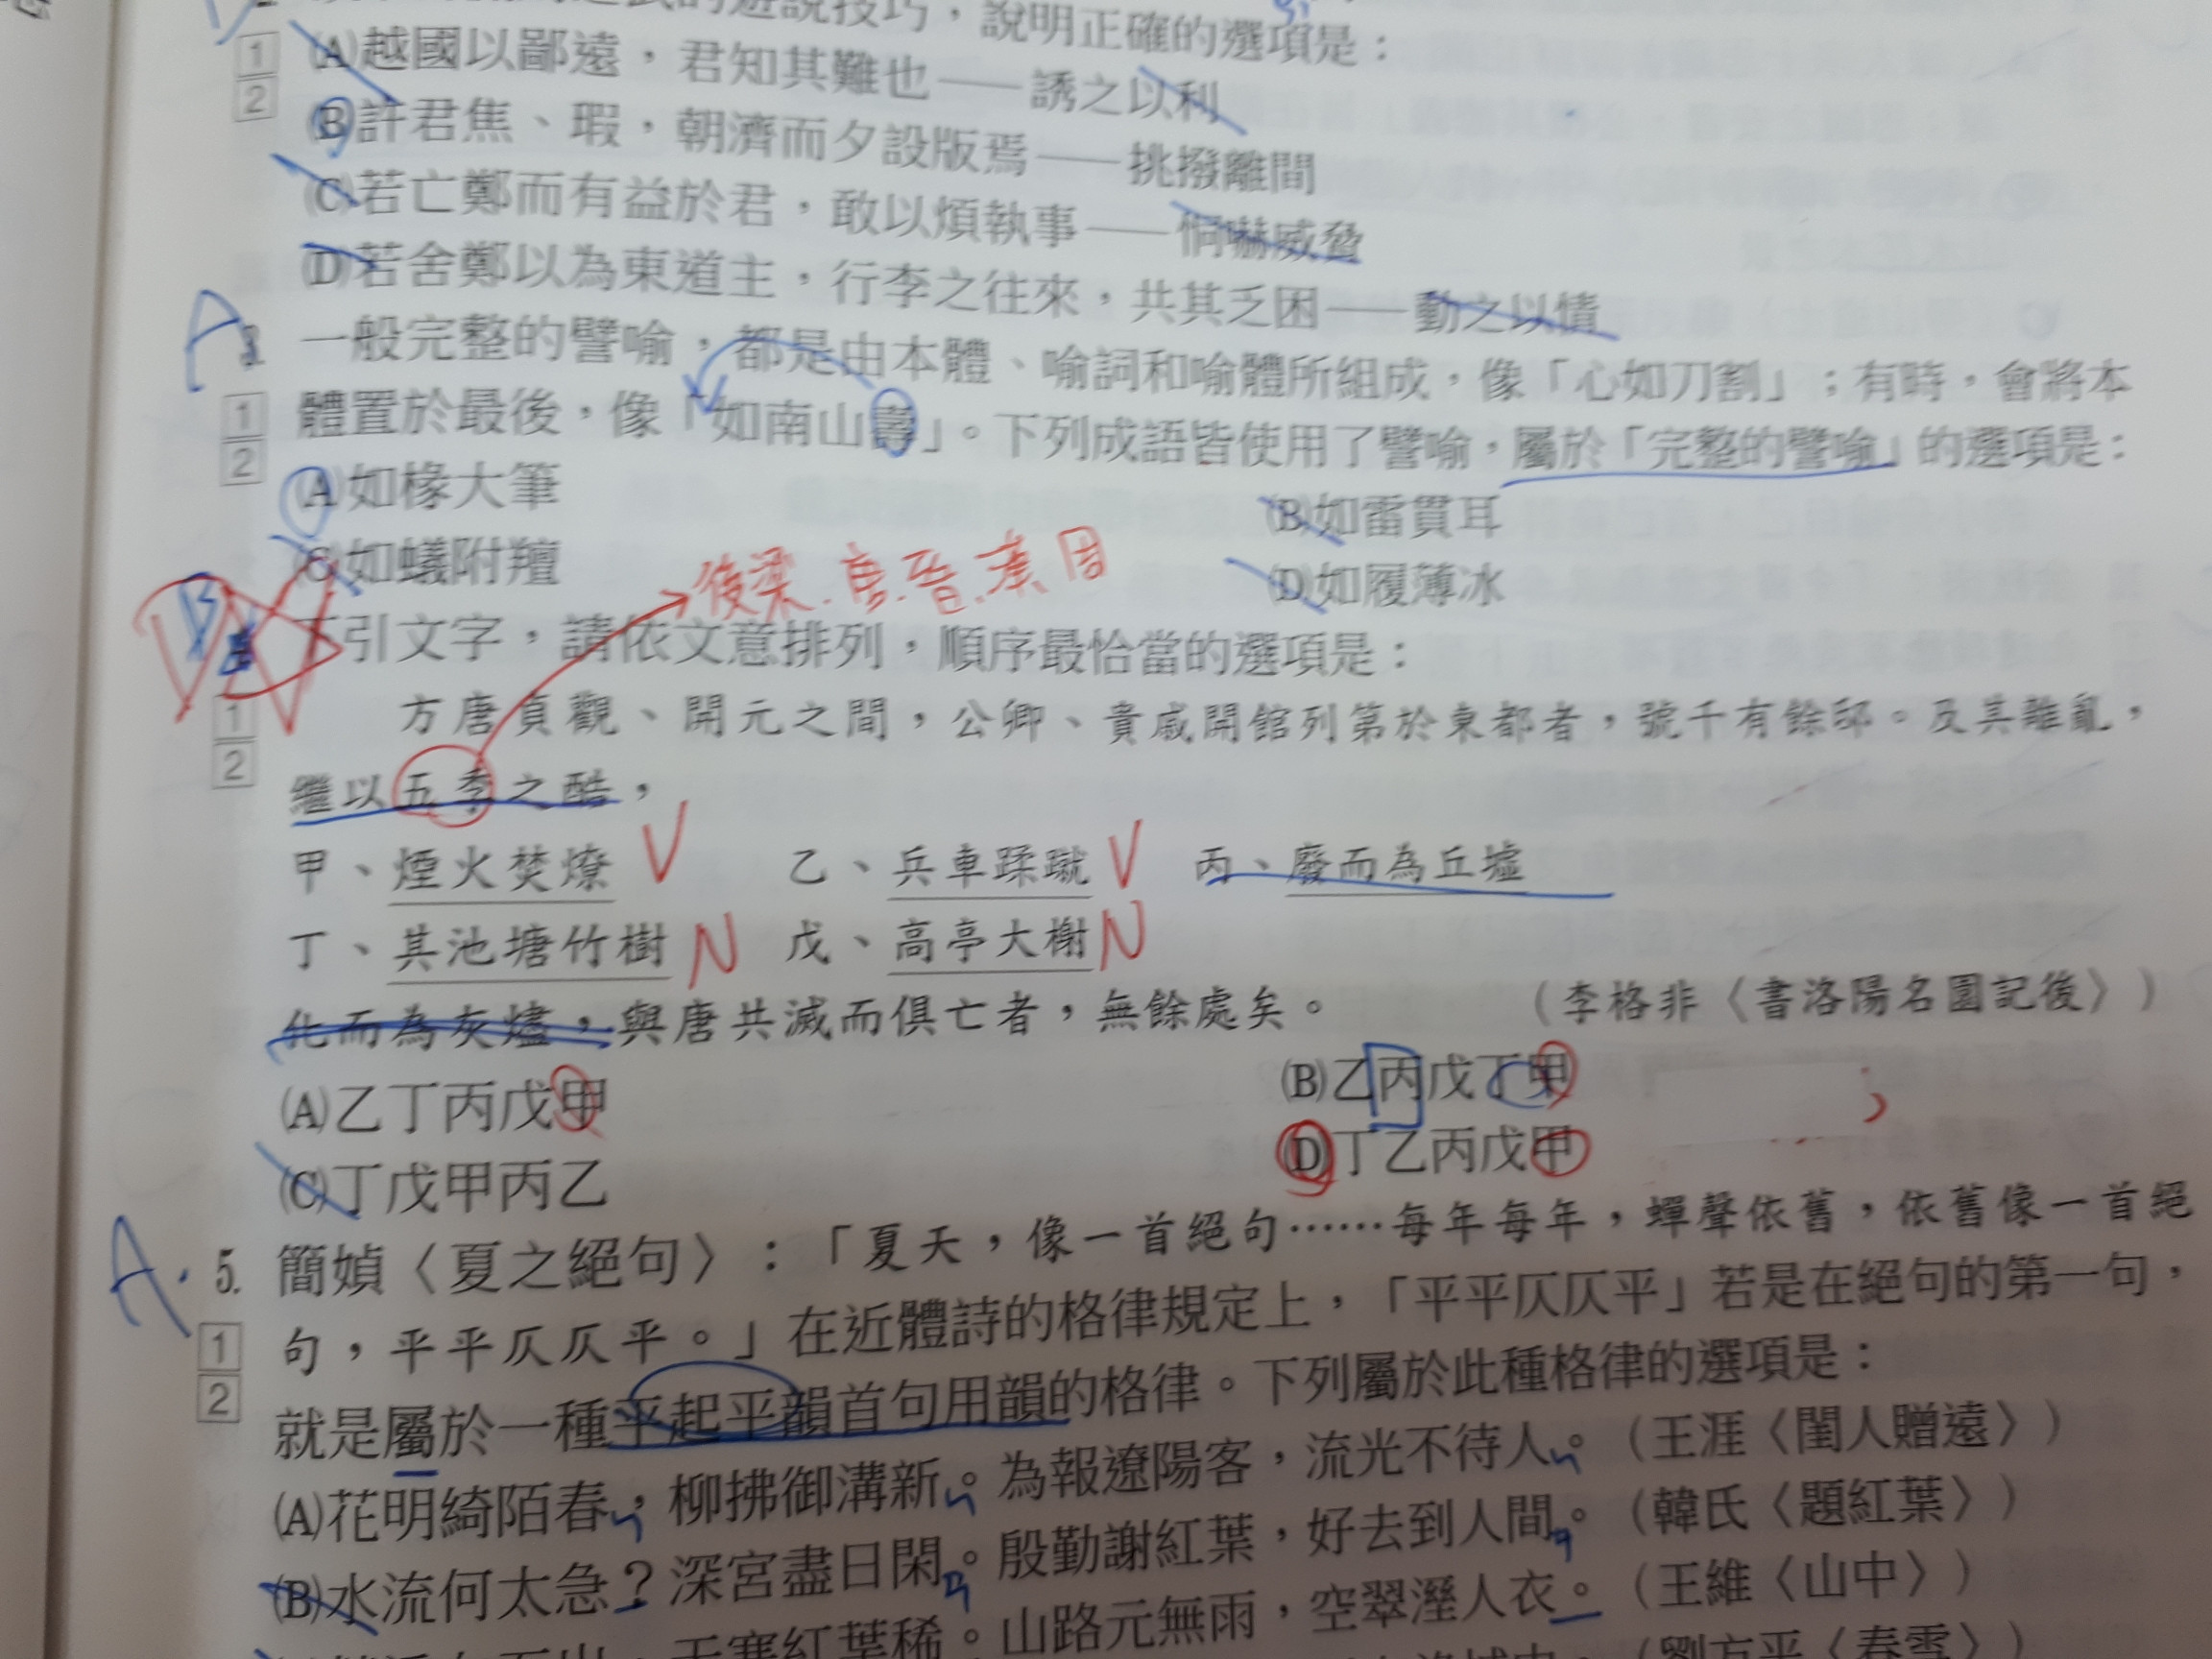 的遊說技巧，說明正確的選項是：
1
2
(A)越國以鄙遠，君知其難也——誘之以利
(B)許君焦、瑕，朝濟而夕設版焉——挑撥離間
(C)若亡鄭而有益於君，敢以煩執事——恫嚇威脅
(D)若舍鄭以為東道主，行李之往來，共其乏困——動之以情
A
3. 一般完整的譬喻，都是由本體、喻詞和喻體所組成，像「心如刀割」；有時，會將本
1
2
體置於最後，像「如南山壽」。下列成語皆使用了譬喻，屬於「完整的譬喻」的選項是：
(A)如椽大筆
(B)如雷貫耳
(C)如蟻附羶
(D)如履薄冰
後梁.唐.晉.漢.周
B
下引文字，請依文意排列，順序最恰當的選項是：
1
2
方唐貞觀、開元之間，公卿、貴戚開館列第於東都者，號千有餘邸。及其離亂，
繼以五季之酷，
甲、煙火焚燎 V 乙、兵車蹂蹴 V 丙、廢而為丘墟
丁、其池塘竹樹 N 戊、高亭大榭 N
化而為灰燼，與唐共滅而俱亡者，無餘處矣。（李格非〈書洛陽名園記後〉）
(A)乙丁丙戊甲
(B)乙丙戊丁甲
(C)丁戊甲丙乙
(D)丁乙丙戊甲
A.
5. 簡媜〈夏之絕句〉：「夏天，像一首絕句……每年每年，蟬聲依舊，依舊像一首絕
1
2
句，平平仄仄平。」在近體詩的格律規定上，「平平仄仄平」若是在絕句的第一句，
就是屬於一種平起平韻首句用韻的格律。下列屬於此種格律的選項是：
(A)花明綺陌春，柳拂御溝新。為報遼陽客，流光不待人。（王涯〈閨人贈遠〉）
(B)水流何太急？深宮盡日閑。殷勤謝紅葉，好去到人間。（韓氏〈題紅葉〉）
天寒紅葉稀。山路元無雨，空翠溼人衣。（王維〈山中〉）
（劉方平〈春雪〉）